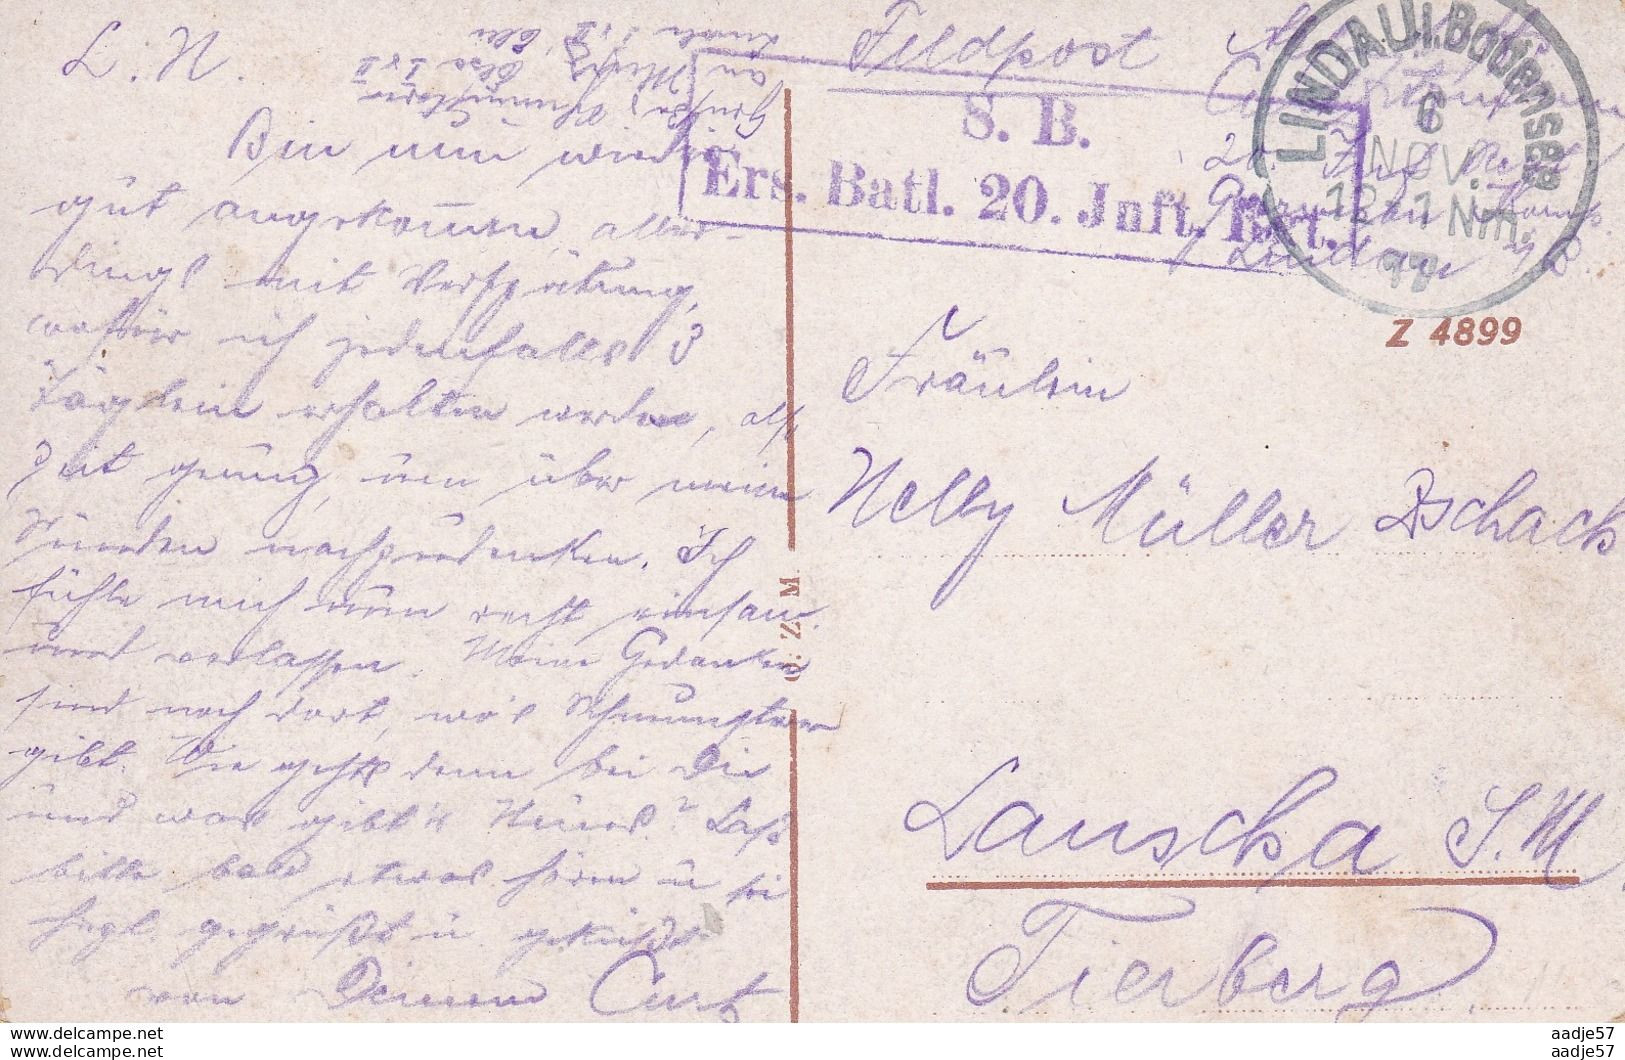 L. N.
Bin nun wieder
gut angekommen, aller-
dings mit Verspätung,
wofür ich jedenfalls 3
Täglein erhalten werde, also
Zeit genug, um über meine
Sünden nachzudenken. Ich
fühle mich nun recht einsam
und verlassen. Meine Gedanken
sind noch dort, wo's
gibt. Wie geht's denn bei Dir
und was gibt's Neues? Laß
bitte bald etwas hören u sei
herzl. gegrüßt u. geküßt
von Deinem Curt
Feldpost
S. B.
Ers. Batl. 20. Inft. Rgt.
LINDAU i. Bodensee
6
NOV.
12-1 Nm.
17
Lindau i/B.
Z 4899
Fräulein
Nelly Müller Zschach
Lauscha S. M.
Tierberg
M
aadje57
delcampe.net
aadje57
delcampe.net